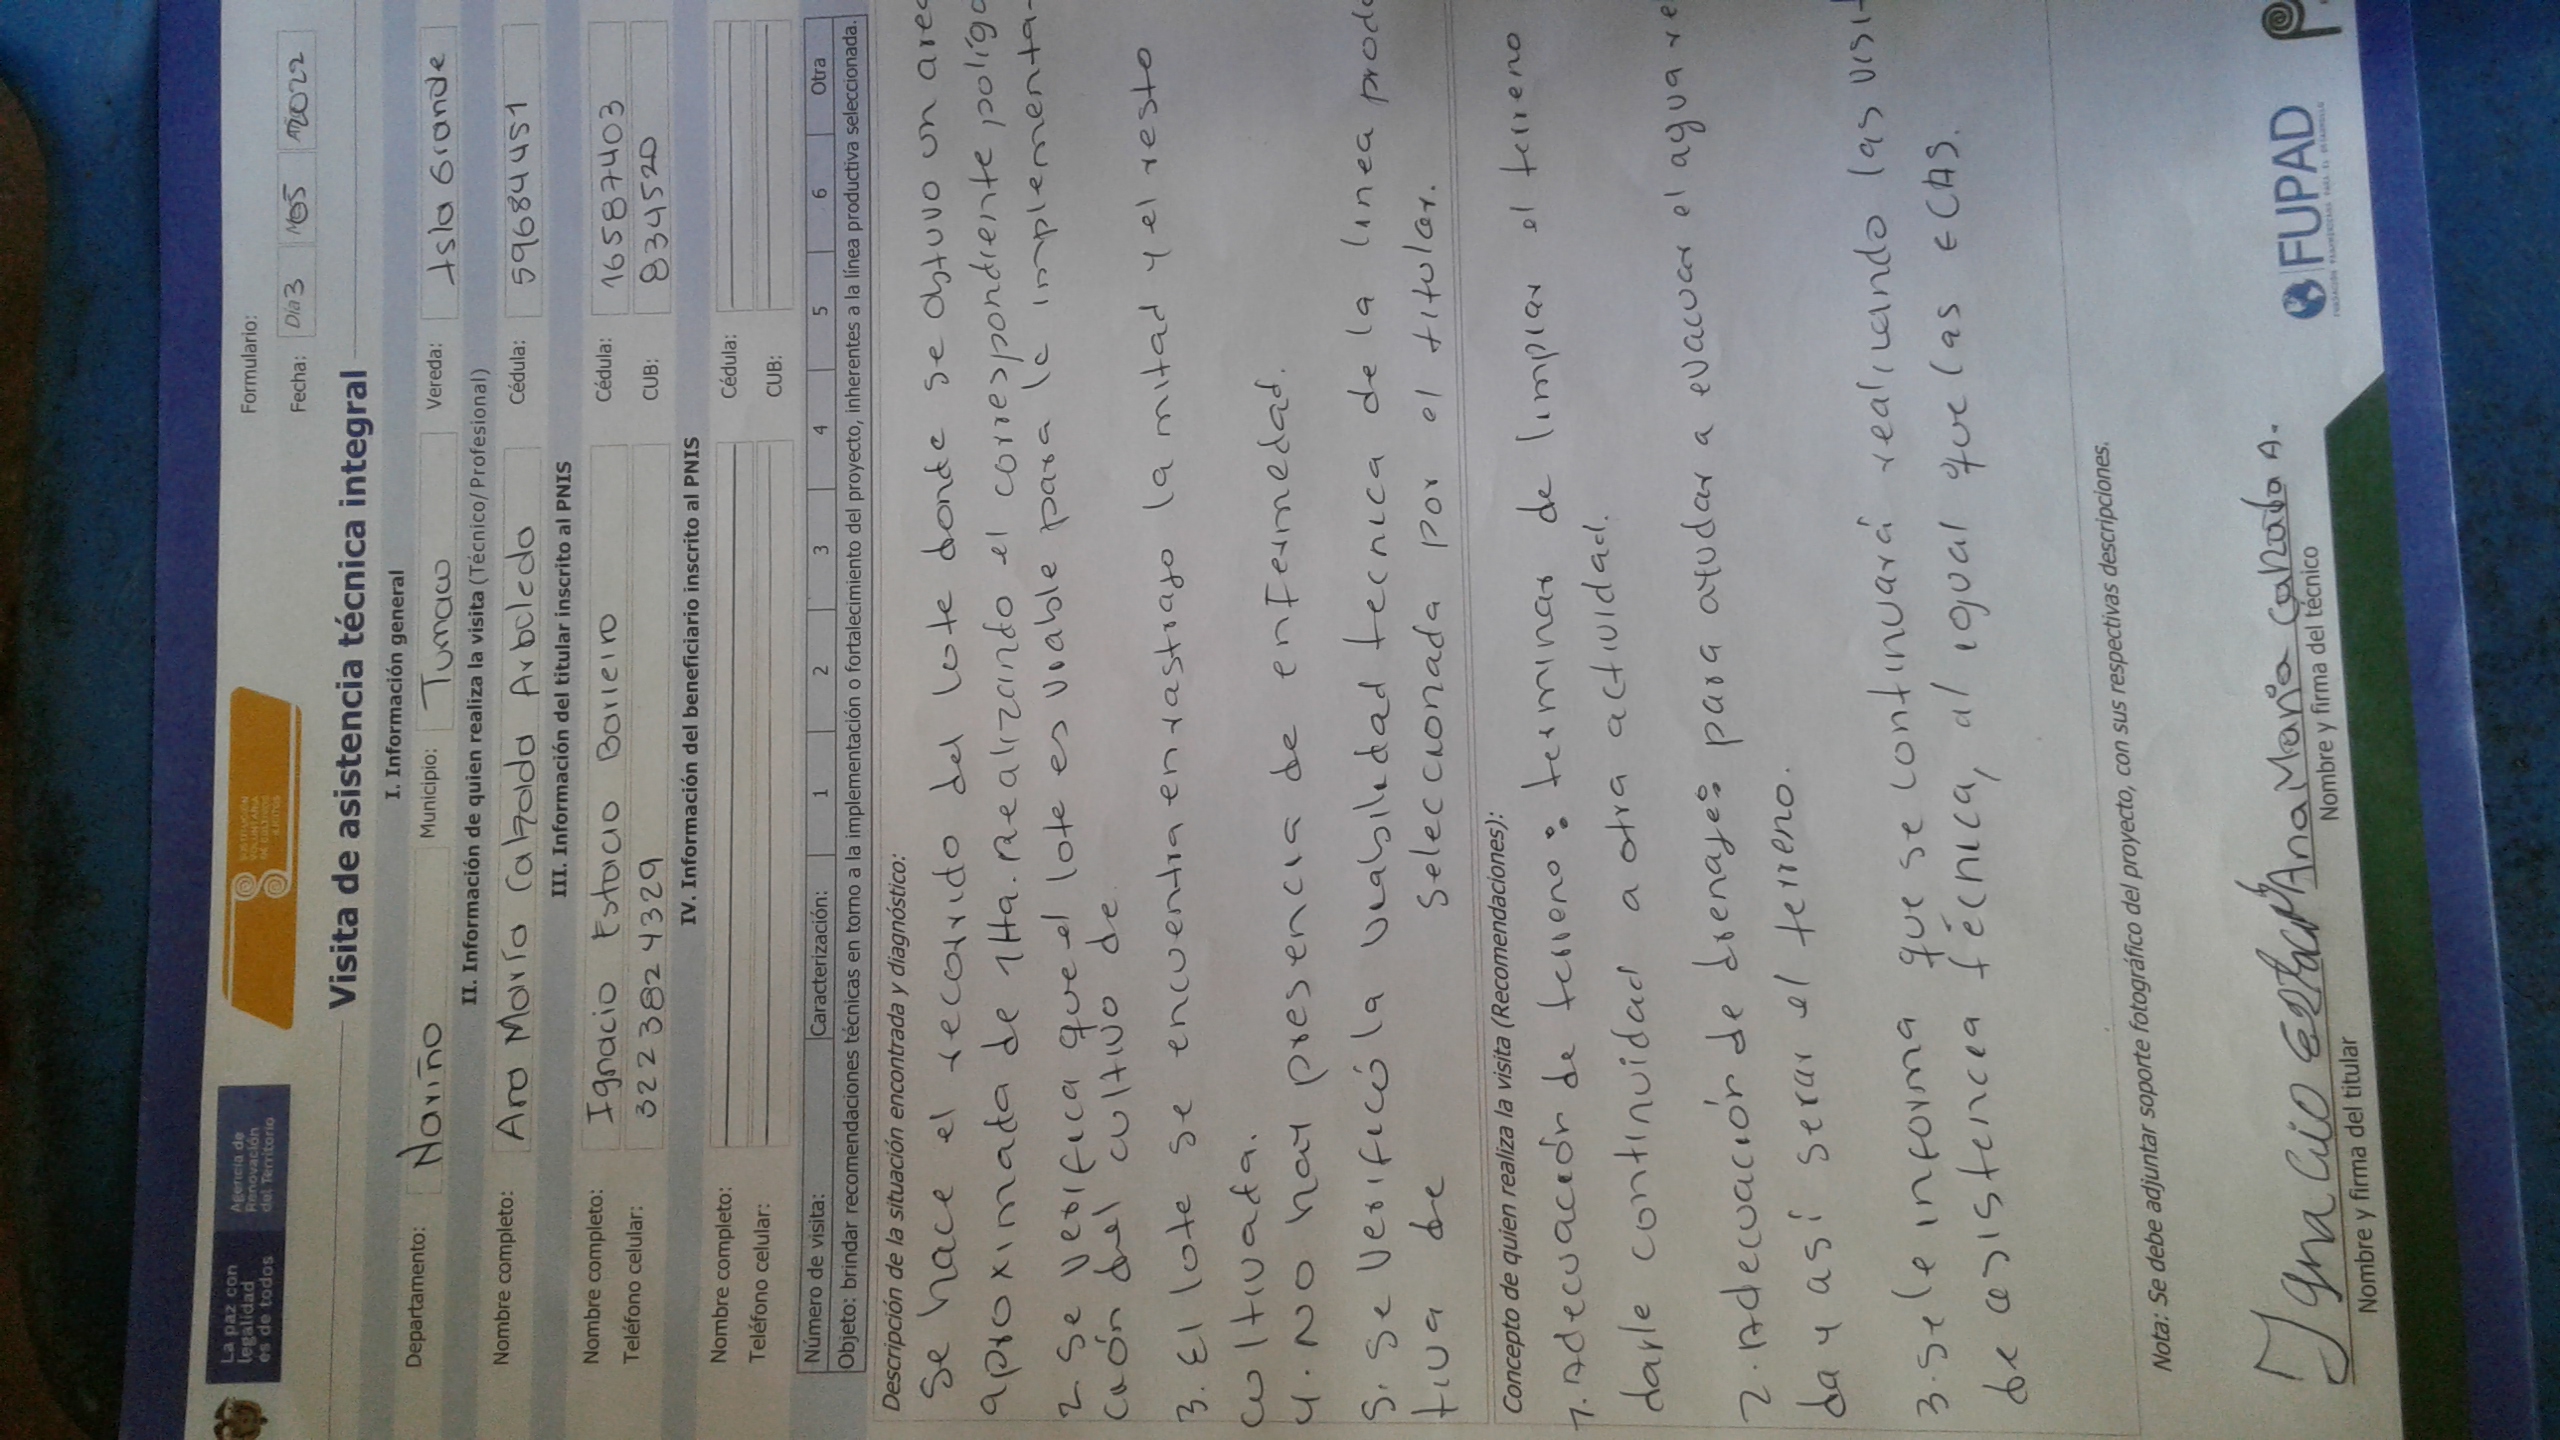 La paz con
legalidad
es de todos
Agencia de
Renovación
del Territorio
SUSTITUCIÓN
VOLUNTARIA
DE CULTIVOS
ILÍCITOS
Formulario:
Fecha: Día 3 Mes 5 Año 2022
Visita de asistencia técnica integral
I. Información general
Departamento: Nariño Municipio: Tumaco Vereda: Isla Grande
II. Información de quien realiza la visita (Técnico/Profesional)
Nombre completo: Ana María Calzada Arboleda Cédula: 59684451
III. Información del titular inscrito al PNIS
Nombre completo: Ignacio Estacio Bareiro Cédula: 16587403
Teléfono celular: 322 382 4329 CUB: 834520
IV. Información del beneficiario inscrito al PNIS
Nombre completo: Cédula:
Teléfono celular: CUB:
Número de visita: Caracterización: 1 2 3 4 5 6 Otra
Objeto: brindar recomendaciones técnicas en torno a la implementación o fortalecimiento del proyecto, inherentes a la línea productiva seleccionada.
Descripción de la situación encontrada y diagnóstico:
Se hace el recorrido del lote donde se obtuvo un area
aproximada de 1Ha. realizando el correspondiente polígo
2. Se verifica que el lote es viable para la implementa-
ción del cultivo de
3. El lote se encuentra enrastrajo la mitad y el resto
cultivada.
4. No hay presencia de enfermedad.
5. Se verificó la viabilidad tecnica de la linea produ
tiva de seleccionada por el titular.
Concepto de quien realiza la visita (Recomendaciones):
1. Adecuación de terreno: terminar de limpiar el terreno
darle continuidad a otra actividad.
2. Adecuación de drenajes: para ayudar a evacuar el agua re
da y así serar el terreno.
3. Se le informa que se continuará realizando las visit
de asistencia técnica, al igual que las ECAS.
Nota: Se debe adjuntar soporte fotográfico del proyecto, con sus respectivas descripciones.
Ignacio Estacio Ana María Calzada A.
Nombre y firma del titular Nombre y firma del técnico
FUPAD